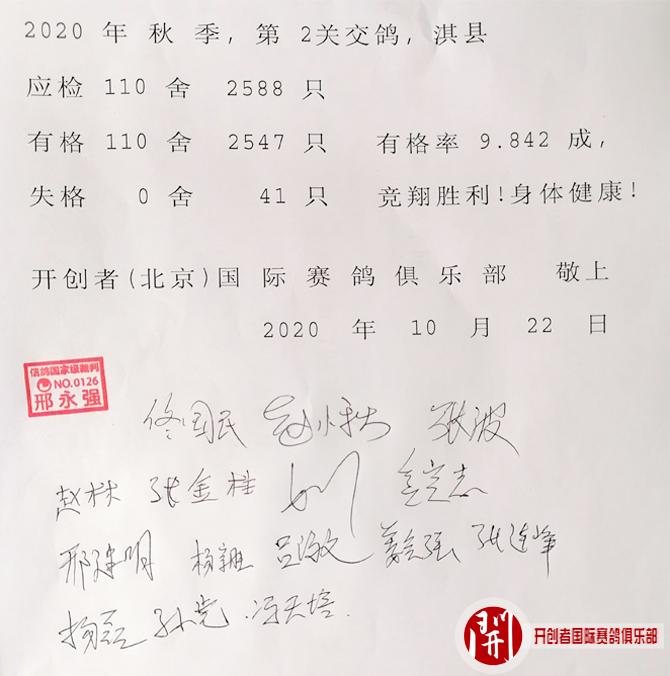 2020 年 秋 季, 第 2关交鸽, 淇县
应检 110 舍 2588 只
有格 110 舍 2547 只 有格率 9.842 成,
失格 0 舍 41 只 竞翔胜利!身体健康!
开创者(北京)国 际 赛 鸽 俱 乐 部 敬上
2020 年 10 月 22 日
信鸽国家级裁判
NO.0126
邢永强
佟国民 张波
赵林 张金桂
邢建明 杨 张连峰
孙 冯天培
開 开创者国际赛鸽俱乐部